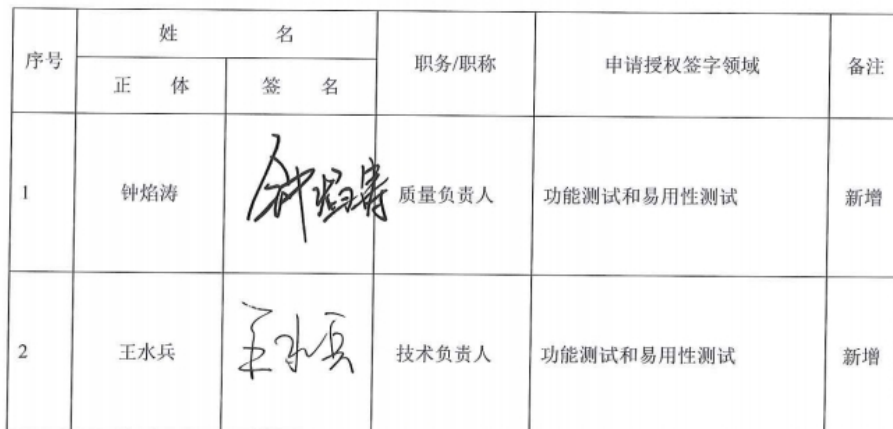 姓 名
序号 职务/职称 申请授权签字领域 备注
正 体 签 名
1 钟焰涛 钟焰涛 质量负责人 功能测试和易用性测试 新增
2 王水兵 王水兵 技术负责人 功能测试和易用性测试 新增